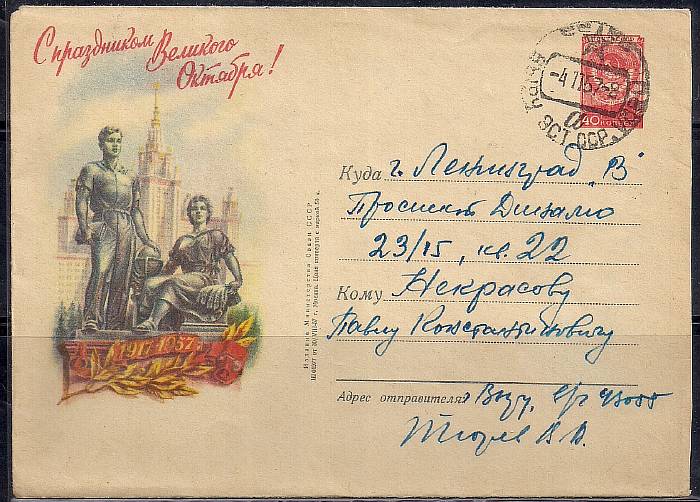 С праздником Великого
Октября!
40 КОПЕЕК
-4 11 57-8
ЭСТ. ССР
1917-1957
Издание Министерства Связи СССР
Куда г. Ленинград „В"
Проспект Динамо
23/15, кв. 22
Кому Некрасову
Павлу Константиновичу
Адрес отправителя: